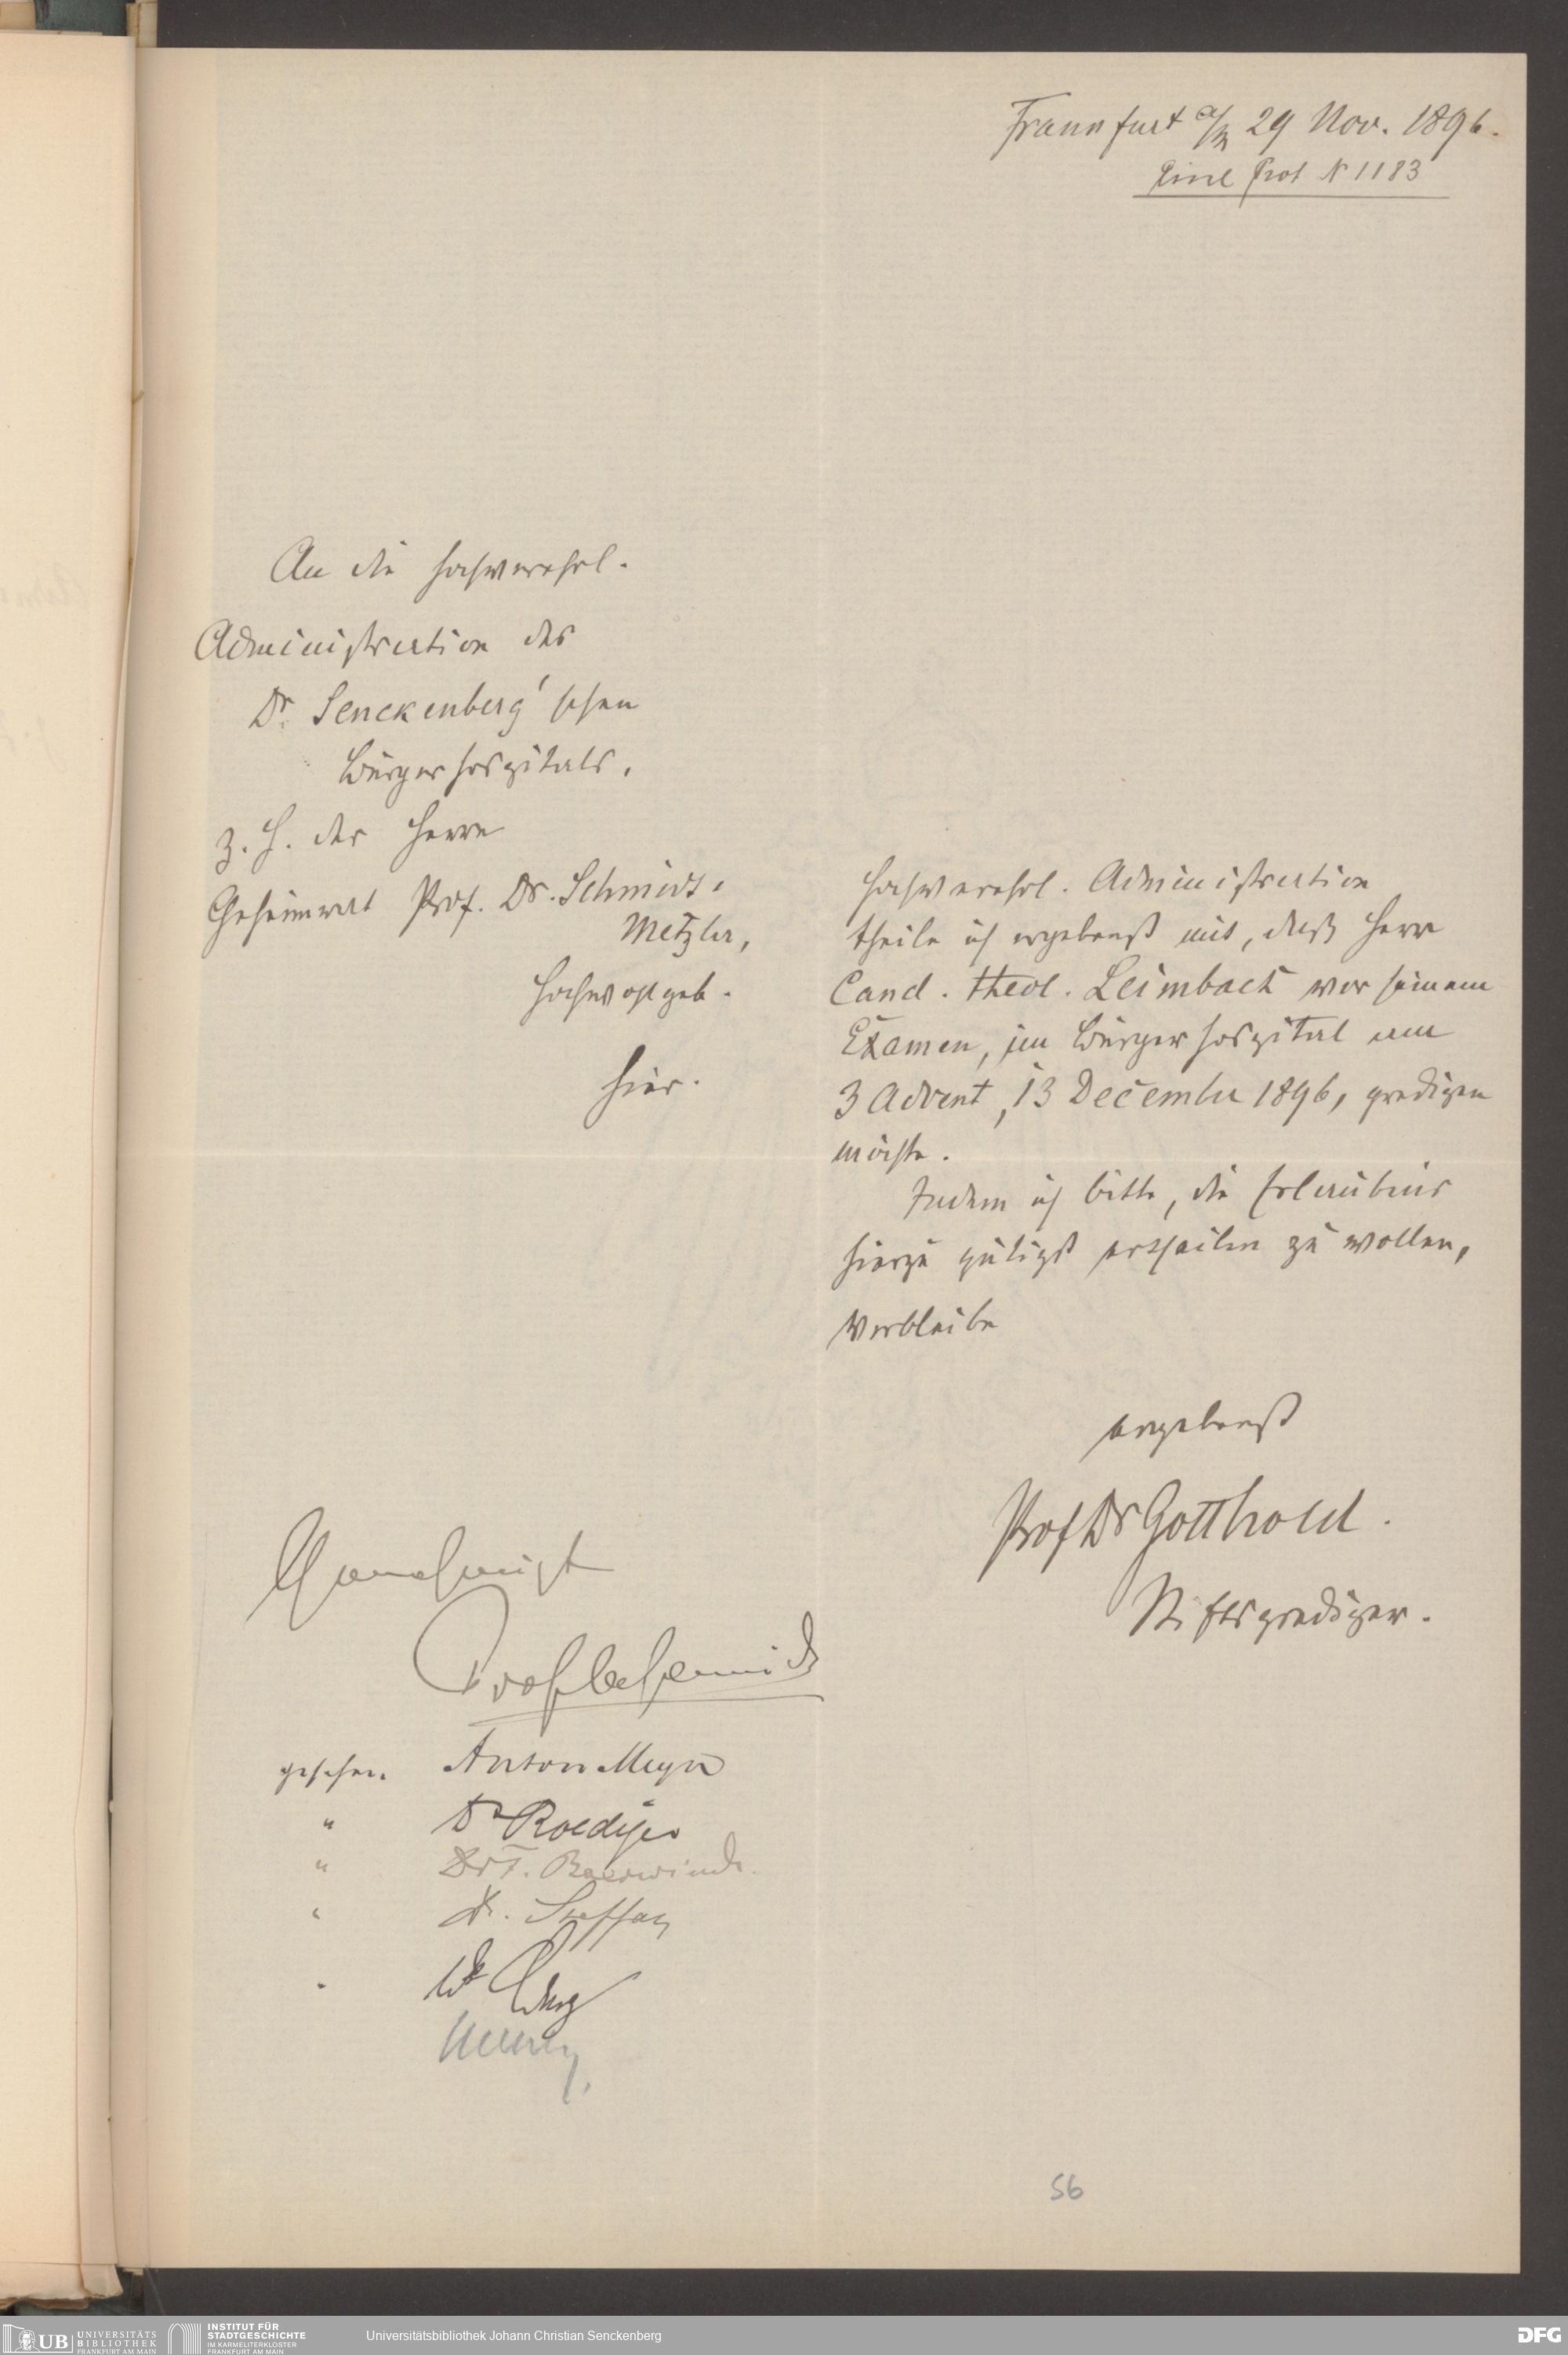 Frankfurt a/M 29 Nov. 1896.
Einl Prot N 1183
An die hochverehrl.
Administration des
Dr. Senckenberg'schen
Bürgerhospitals,
z. H. des Herrn
Geheimrat Prof. Dr. Schmidt-
Metzler,
Hochwohlgeb.
hier.
Hochverehrl. Administration
theile ich ergebenst mit, daß Herr
Cand. theol. Leimbach vor seinem
Examen, im Bürgerhospital am
3 Advent, 13 December 1896, predigen
möchte.
Indem ich bitte, die Erlaubnis
hierzu gütigst ertheilen zu wollen,
verbleibe
ergebenst
Prof Dr Gotthold.
Stiftsprediger.
Genehmigt
gesehen. Anton Meyer
" Dr Roediger
" Dr F. Baerwindt.
" Dr. Steffan
56
UB UNIVERSITÄTS
BIBLIOTHEK
FRANKFURT AM MAIN
INSTITUT FÜR
STADTGESCHICHTE
IM KARMELITERKLOSTER
FRANKFURT AM MAIN
Universitätsbibliothek Johann Christian Senckenberg
DFG